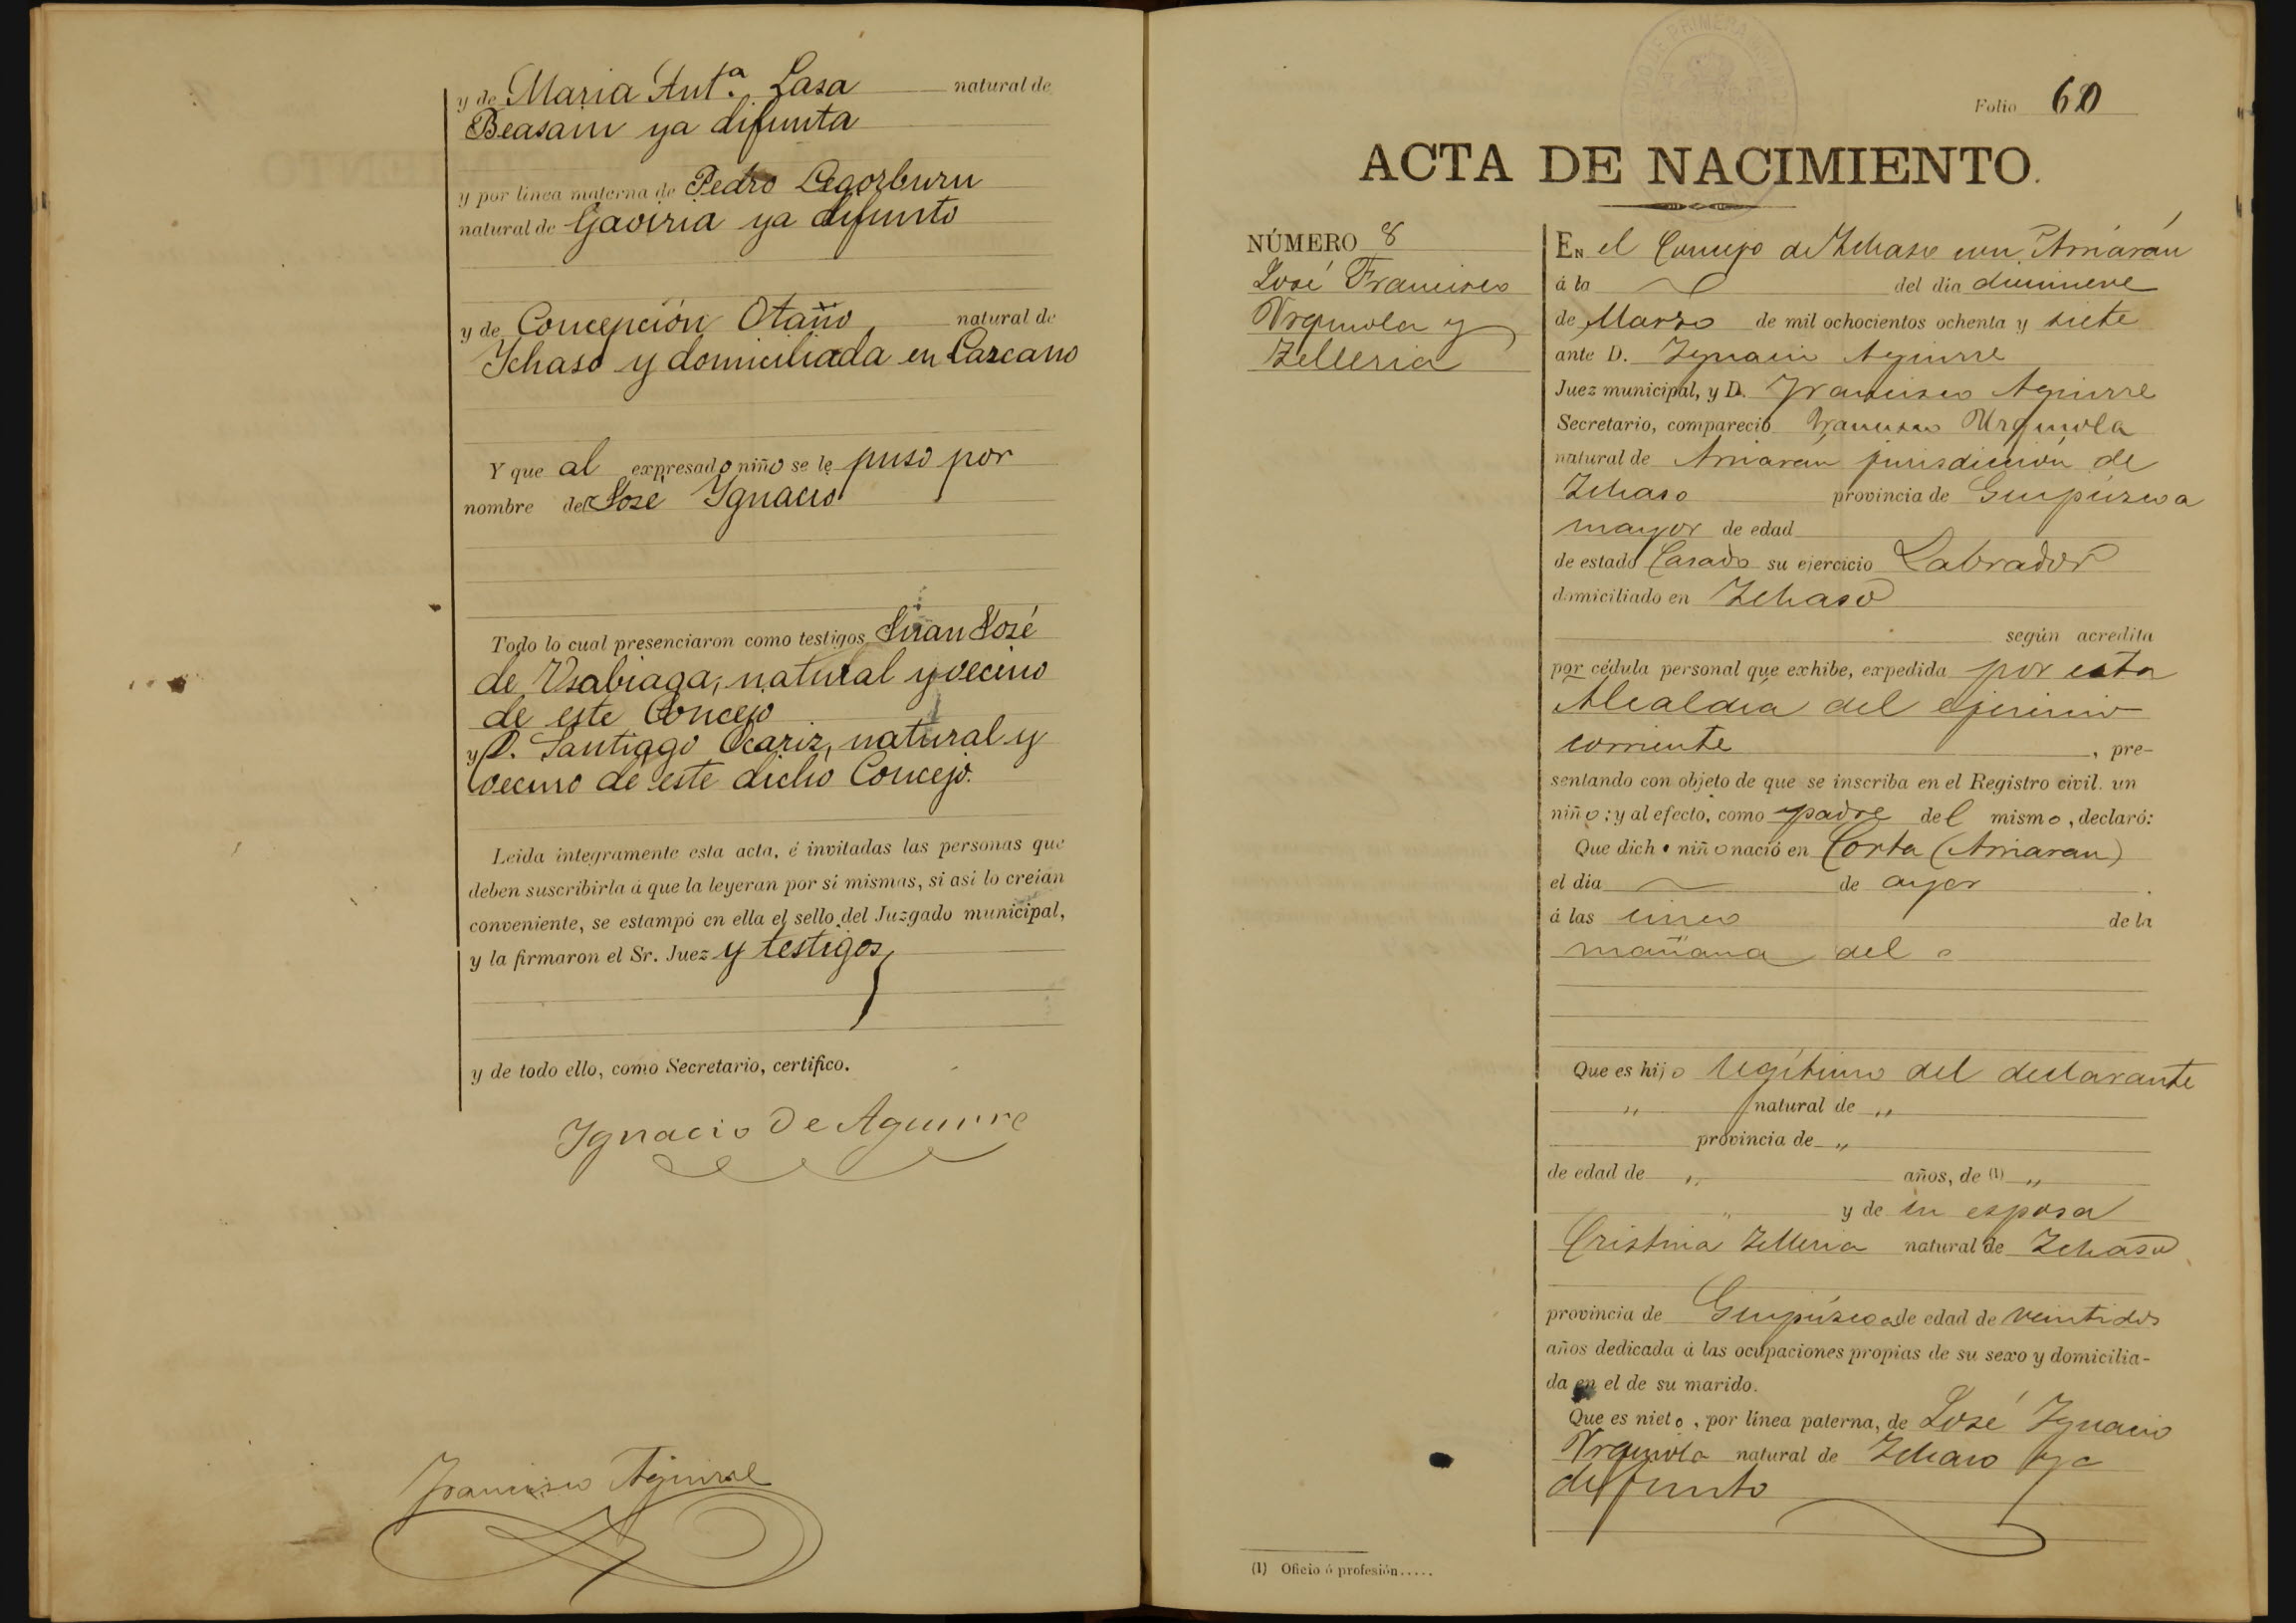 y de Maria Ant.ª Lasa natural de
Beasain ya difunta
y por línea materna de Pedro Legorburu
natural de Gaviria ya difunto
y de Concepción Otaño natural de
Ychaso y domiciliada en Lazcano
Y que al expresado niño se le puso por
nombre de José Ygnacio
Todo lo cual presenciaron como testigos Juan José
de Usabiaga, natural y vecino
de este Concejo
y D. Santiago Ocariz, natural y
vecino de este dicho Concejo.
Leida íntegramente esta acta, é invitadas las personas que
deben suscribirla á que la leyeran por sí mismas, si así lo creían
conveniente, se estampó en ella el sello del Juzgado municipal,
y la firmaron el Sr. Juez y testigos,
y de todo ello, como Secretario, certifico.
Ygnacio De Aguirre
Francisco Aguirre
Folio 60
ACTA DE NACIMIENTO.
NÚMERO 8
José Francisco
Urquiola y
Telleria
EN el Concejo de Ichaso con Arriarán
á la del dia diecinueve
de Marzo de mil ochocientos ochenta y siete
ante D. Ignacio Aguirre
Juez municipal, y D. Francisco Aguirre
Secretario, compareció Francisco Urquiola
natural de Arriaran jurisdicción de
Ichaso provincia de Guipúzcoa
mayor de edad
de estado Casado su ejercicio Labrador
domiciliado en Ichaso
según acredita
por cédula personal que exhibe, expedida por esta
Alcaldía del ejercicio
corriente, pre-
sentando con objeto de que se inscriba en el Registro civil. un
niño; y al efecto, como padre del mismo, declaró:
Que dicho niño nació en Corta (Arriaran)
el dia de ayer.
á las cinco de la
mañana del
Que es hijo legítimo del declarante
" natural de "
provincia de "
de edad de " años, de (1) "
" y de su esposa
Cristina Telleria natural de Ichaso
provincia de Guipúzcoa de edad de veintidos
años dedicada á las ocupaciones propias de su sexo y domicilia-
da en el de su marido.
Que es nieto, por línea paterna, de José Ignacio
Urquiola natural de Ichaso ya
difunto
(1) Oficio ó profesión.....